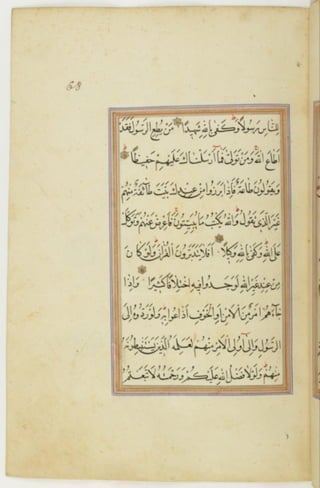 58
لِلنَّاسِ رَسُولًا وَكَفَىٰ بِاللَّهِ شَهِيدًا مَنْ يُطِعِ الرَّسُولَ فَقَدْ
أَطَاعَ اللَّهَ وَمَنْ تَوَلَّىٰ فَمَا أَرْسَلْنَاكَ عَلَيْهِمْ حَفِيظًا
وَيَقُولُونَ طَاعَةٌ فَإِذَا بَرَزُوا مِنْ عِنْدِكَ بَيَّتَ طَائِفَةٌ مِنْهُمْ
غَيْرَ الَّذِي تَقُولُ وَاللَّهُ يَكْتُبُ مَا يُبَيِّتُونَ فَأَعْرِضْ عَنْهُمْ وَتَوَكَّلْ
عَلَى اللَّهِ وَكَفَىٰ بِاللَّهِ وَكِيلًا أَفَلَا يَتَدَبَّرُونَ الْقُرْآنَ وَلَوْ كَانَ
مِنْ عِنْدِ غَيْرِ اللَّهِ لَوَجَدُوا فِيهِ اخْتِلَافًا كَثِيرًا وَإِذَا
جَاءَهُمْ أَمْرٌ مِنَ الْأَمْنِ أَوِ الْخَوْفِ أَذَاعُوا بِهِ وَلَوْ رَدُّوهُ إِلَى
الرَّسُولِ وَإِلَىٰ أُولِي الْأَمْرِ مِنْهُمْ لَعَلِمَهُ الَّذِينَ يَسْتَنْبِطُونَهُ
مِنْهُمْ وَلَوْلَا فَضْلُ اللَّهِ عَلَيْكُمْ وَرَحْمَتُهُ لَاتَّبَعْتُمُ